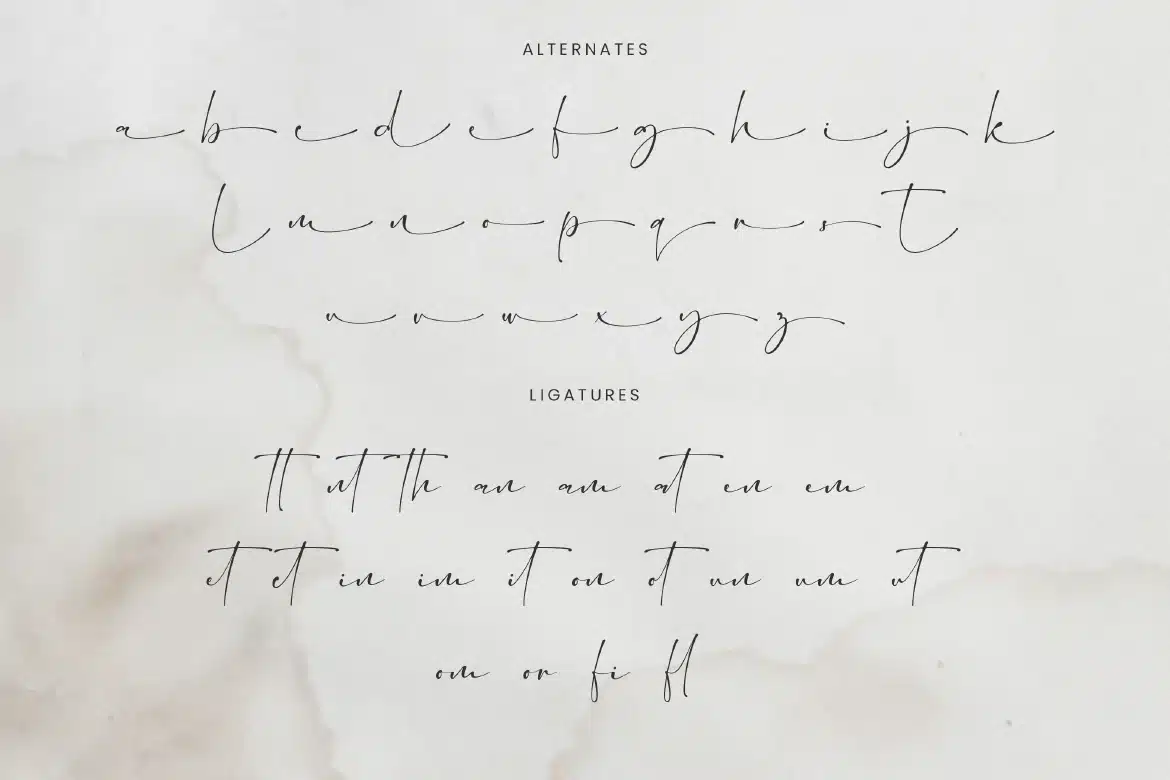 ALTERNATES
a b c d e f g h i j k
l m n o p q r s t
u v w x y z
LIGATURES
tt nt th an am at en em
et ct in im it on ot un um ut
om or fi fl